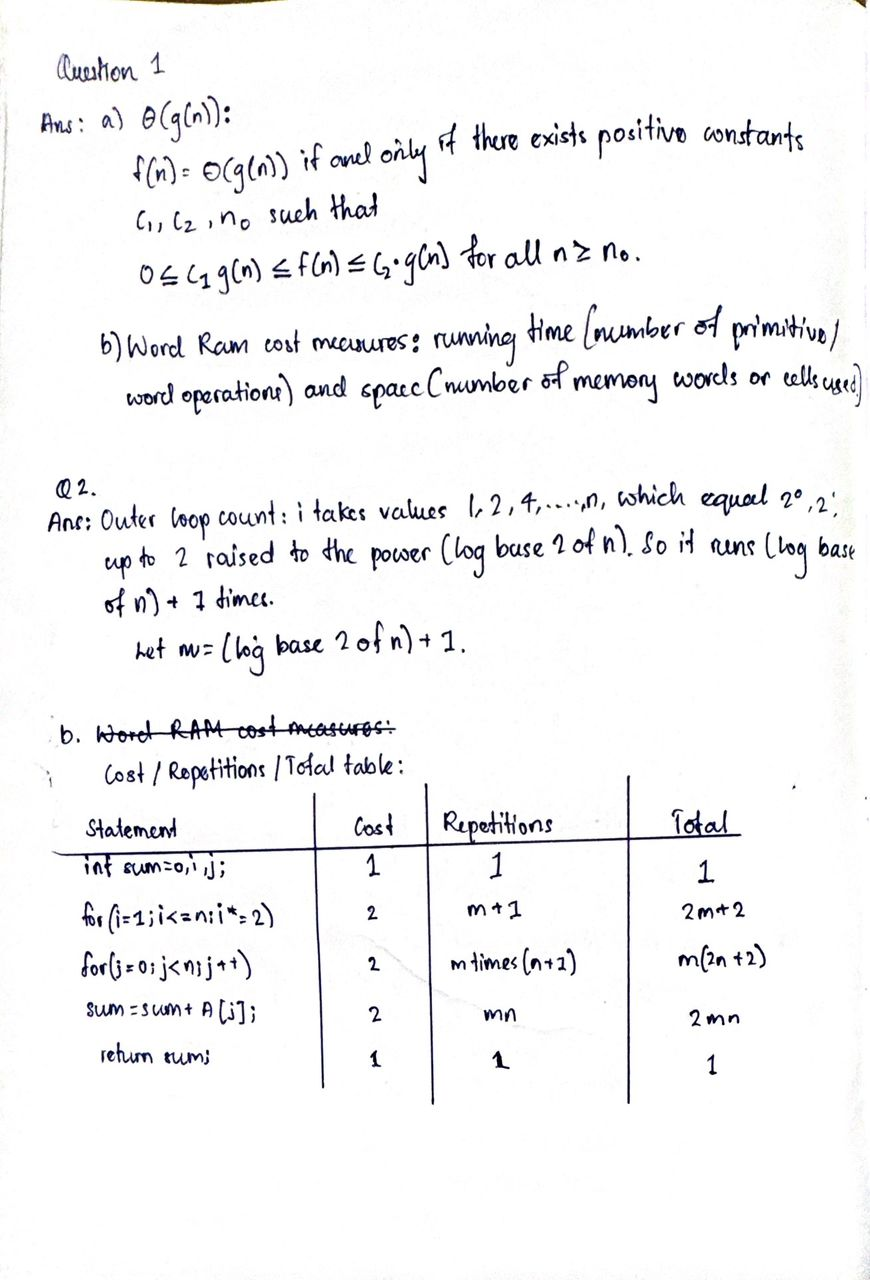 Question 1
Ans: a) θ(g(n)):
f(n) = Θ(g(n)) if and only if there exists positive constants
C₁, C₂, n₀ such that
0 ≤ C₁ g(n) ≤ f(n) ≤ C₂·g(n) for all n ≥ n₀.
b) Word Ram cost measures: running time (number of primitive/
word operations) and space (number of memory words or cells used)
Q2.
Ans: Outer loop count: i takes values 1, 2, 4, ....,n, which equal 2⁰, 2¹,
up to 2 raised to the power (log base 2 of n). So it runs (log base
of n) + 1 times.
Let m = (log base 2 of n) + 1.
b. Word RAM cost measures:
Cost / Repetitions / Total table:
Statement Cost Repetitions Total
int sum=0,i,j; 1 1 1
for(i=1;i<=n;i*=2) 2 m+1 2m+2
for(j=0;j<n;j++) 2 m times (n+1) m(2n+2)
sum = sum + A[j]; 2 mn 2mn
return sum; 1 1 1